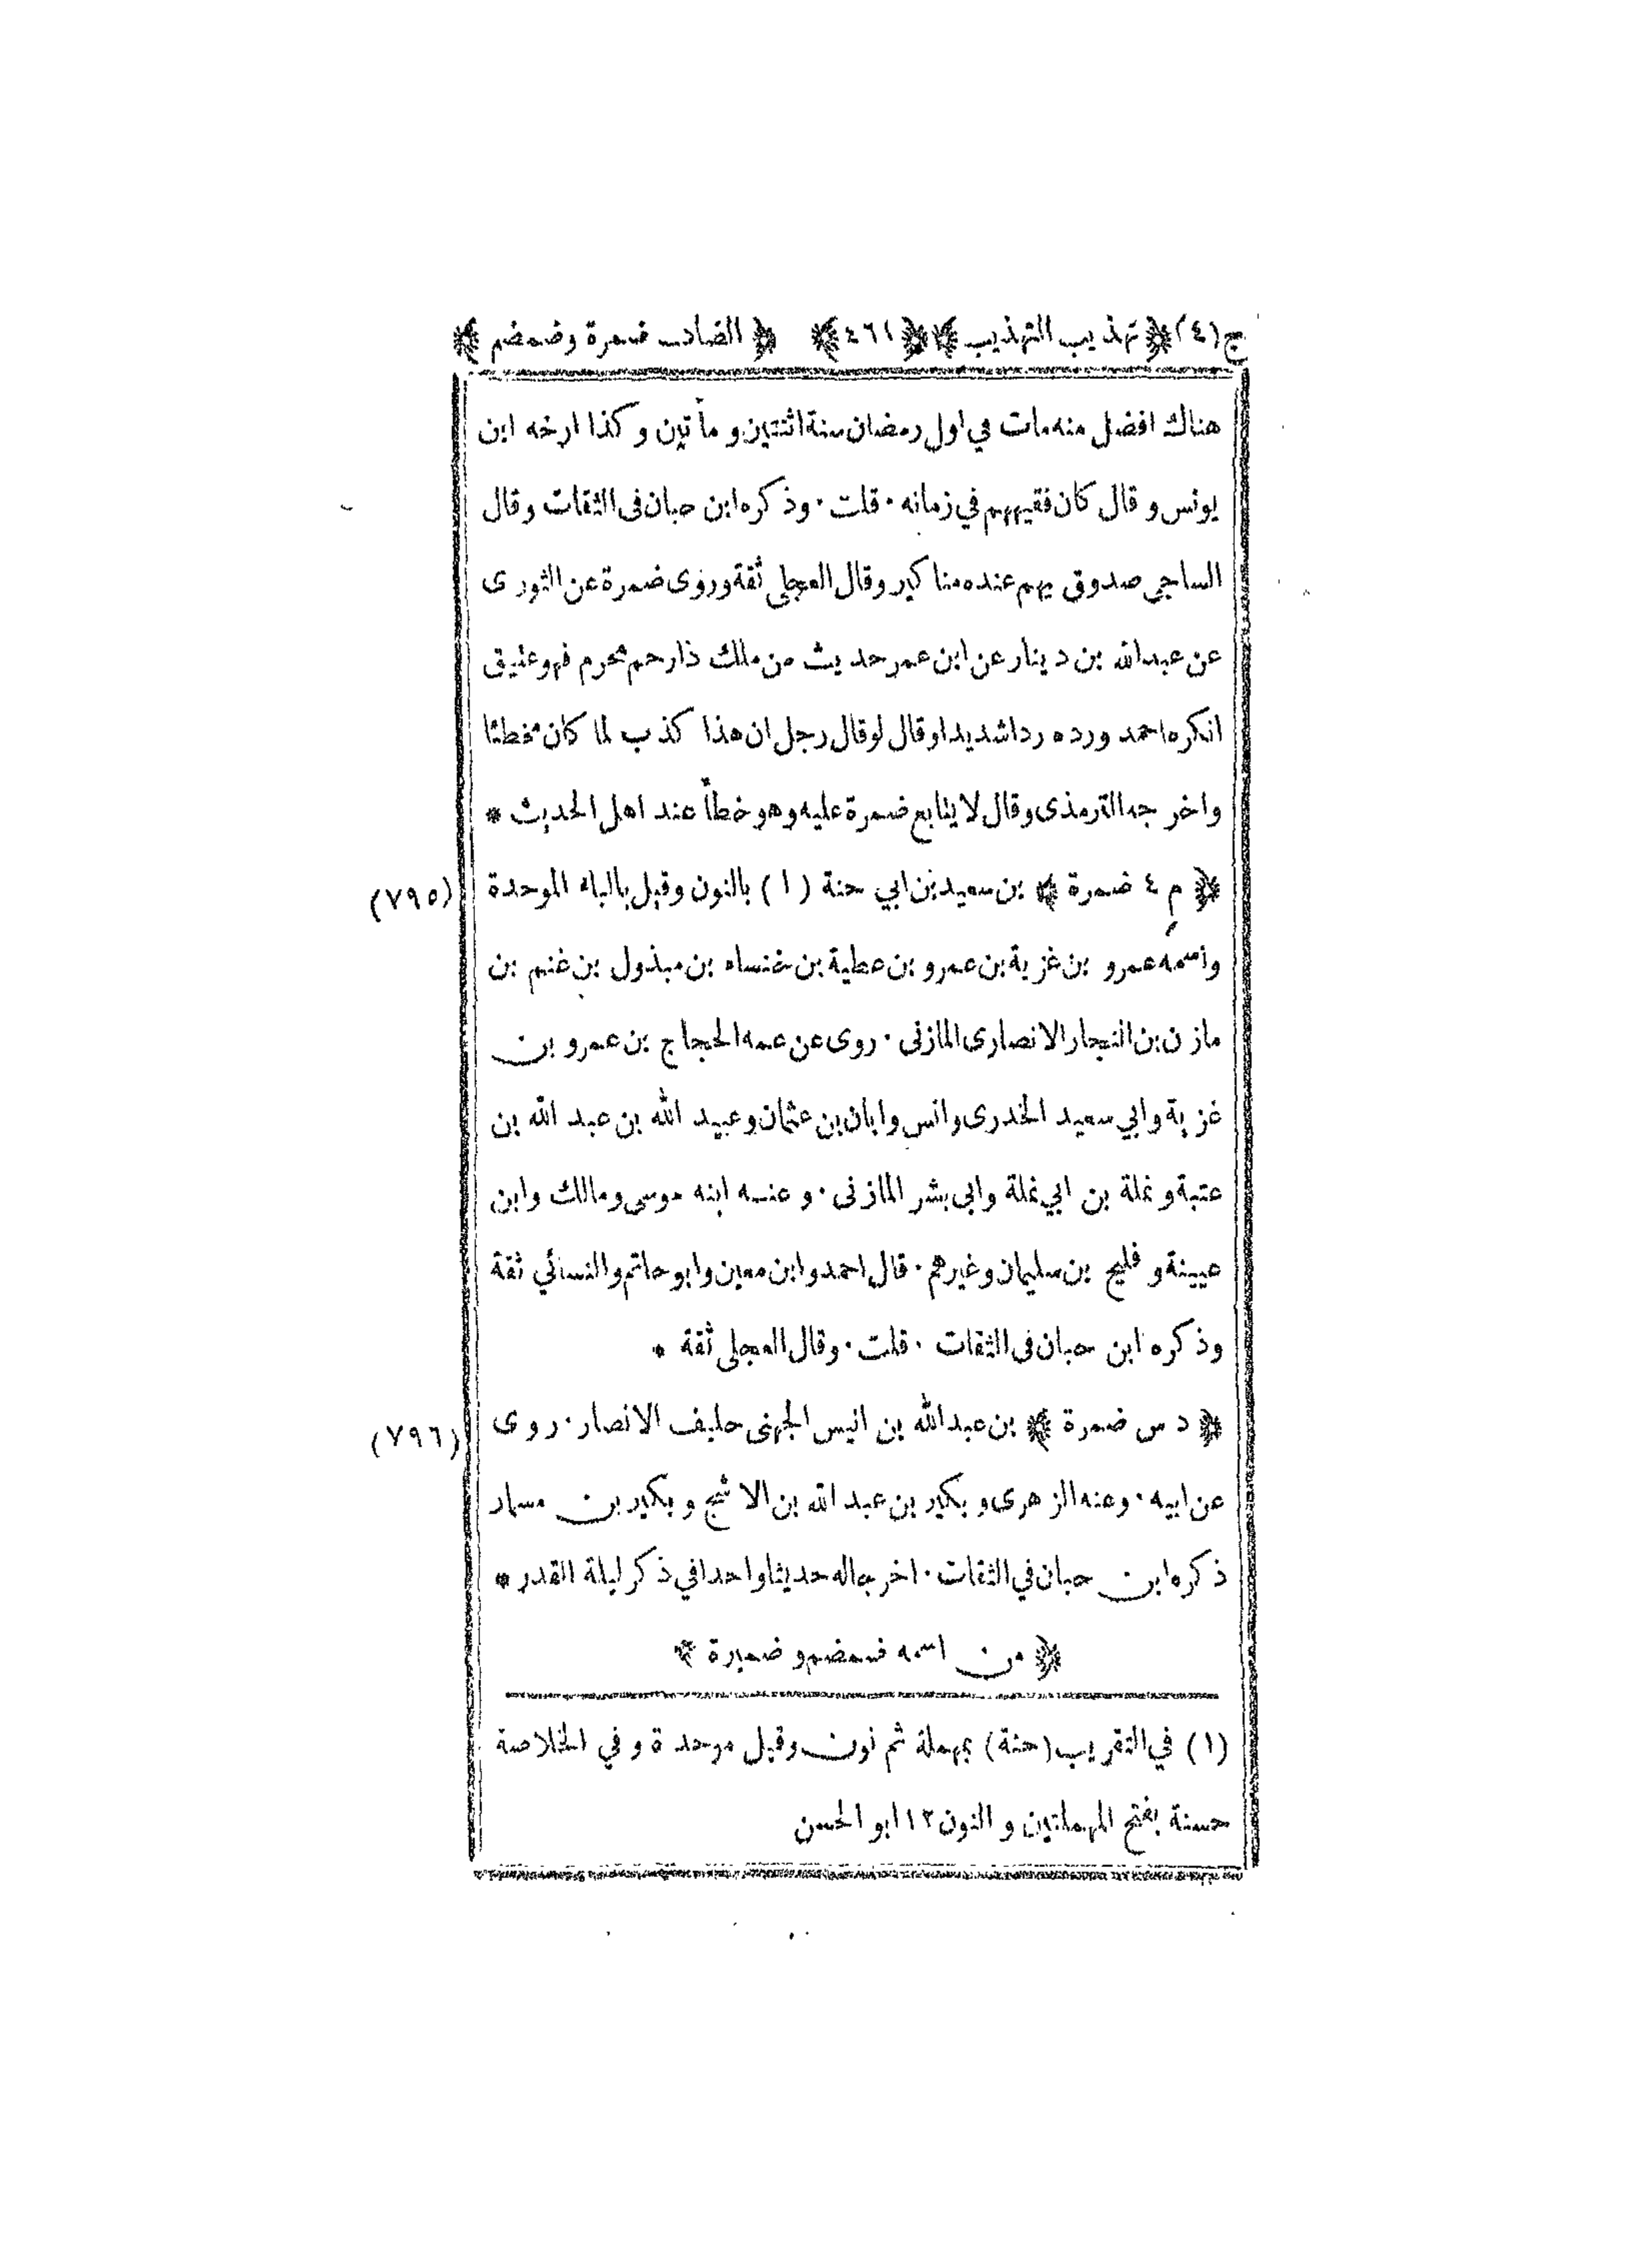 ج(٤) ﴿تهذيب التهذيب﴾ ﴿٤٦١﴾ ﴿الضاد ضمرة وضمضم﴾
هناك افضل منه مات في اول رمضان سنة اثنتين و مأتين و كذا ارخه ابن
يونس و قال كان فقيههم في زمانه · قلت · وذكره ابن حبان فى الثقات وقال
الساجي صدوق يهم عنده مناكير وقال العجلى ثقة وروى ضمرة عن الثورى
عن عبدالله بن دينار عن ابن عمر حديث من ملك ذا رحم محرم فهو عتيق
انكره احمد ورده ردا شديدا وقال لو قال رجل ان هذا كذب لما كان مخطئا
واخرجه الترمذى وقال لا يتابع ضمرة عليه وهو خطأ عند اهل الحديث *
﴿م ٤ ضمرة﴾ بن سعيد بن ابي حنة (١) بالنون وقيل بالباء الموحدة (٧٩٥)
واسمه عمرو بن غزية بن عمرو بن عطية بن خنساء بن مبذول بن غنم بن
مازن بن النجار الانصارى المازنى · روى عن عمه الحجاج بن عمرو بن
غزية وابي سعيد الخدرى وانس وابان بن عثمان وعبيد الله بن عبد الله بن
عتبة و نملة بن ابي نملة وابى بشر المازنى · و عنه ابنه موسى ومالك وابن
عيينة و فليح بن سليمان وغيرهم · قال احمد وابن معين وابو حاتم والنسائي ثقة
وذكره ابن حبان فى الثقات · قلت · وقال العجلى ثقة *
﴿د س ضمرة﴾ بن عبدالله بن انيس الجهنى حليف الانصار · روى (٧٩٦)
عن ابيه · وعنه الزهرى و بكير بن عبد الله بن الاشج و بكير بن مسمار
ذكره ابن حبان في الثقات · اخرجاله حديثا واحدا في ذكر ليلة القدر *
﴿من اسمه ضمضم و ضميرة﴾
(١) في التقريب (حنة) بمهملة ثم نون وقيل موحدة و في الخلاصة
حسنة بفتح المهملتين و النون ١٢ ابو الحسن